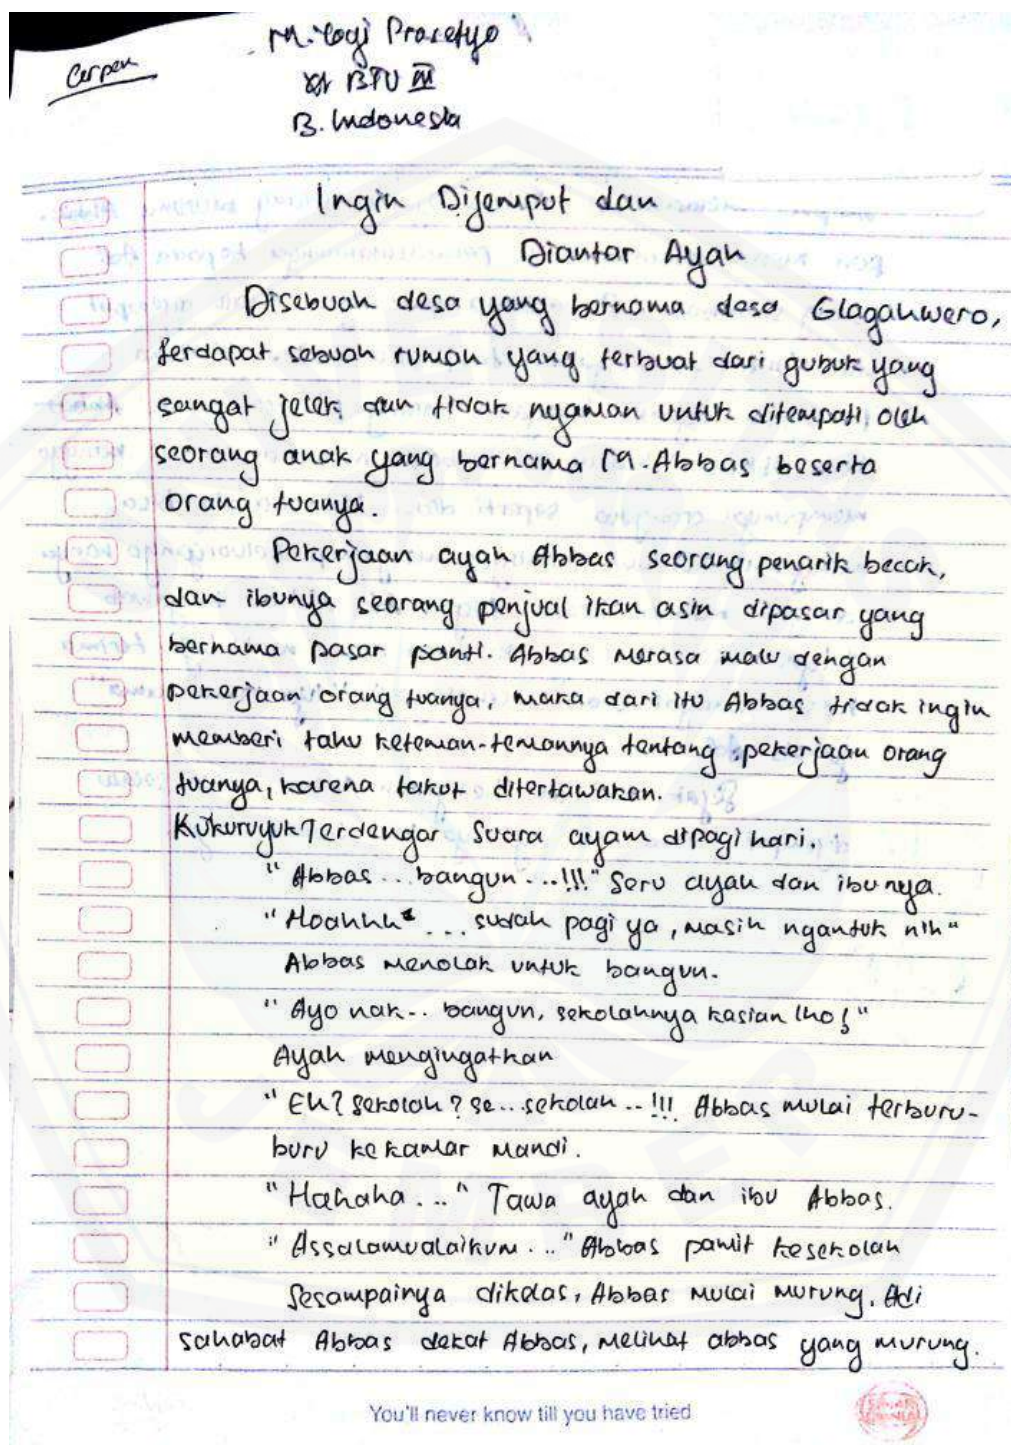 Cerpen
M. Yogi Prasetyo
XI BTU III
B. Indonesia
Ingin Dijemput dan
Diantar Ayah
Disebuah desa yang bernama desa Glagahwero,
terdapat sebuah rumah yang terbuat dari gubuk yang
sangat jelek, dan tidak nyaman untuk ditempati oleh
seorang anak yang bernama M. Abbas beserta
orang tuanya.
Pekerjaan ayah Abbas seorang penarik becak,
dan ibunya seorang penjual ikan asin dipasar yang
bernama pasar panti. Abbas merasa malu dengan
pekerjaan orang tuanya, maka dari itu Abbas tidak ingin
memberi tahu keteman-temannya tentang pekerjaan orang
tuanya, karena takut ditertawakan.
KukuruyukTerdengar suara ayam dipagi hari.
"Abbas... bangun"...!!!" Seru ayah dan ibunya.
"Hoahhh"... sudah pagi ya, masih ngantuk nih"
Abbas menolak untuk bangun.
"Ayo nak.. bangun, sekolahnya kasian lho!"
Ayah mengingatkan
"Eh? sekolah? se... sekolah..!!! Abbas mulai terburu-
buru ke kamar mandi.
"Hahaha..." Tawa ayah dan ibu Abbas.
"Assalamualaikum..." Abbas pamit kesekolah
Sesampainya dikelas, Abbas mulai murung. Adi
sahabat Abbas dekat Abbas, melihat abbas yang murung.
You'll never know till you have tried